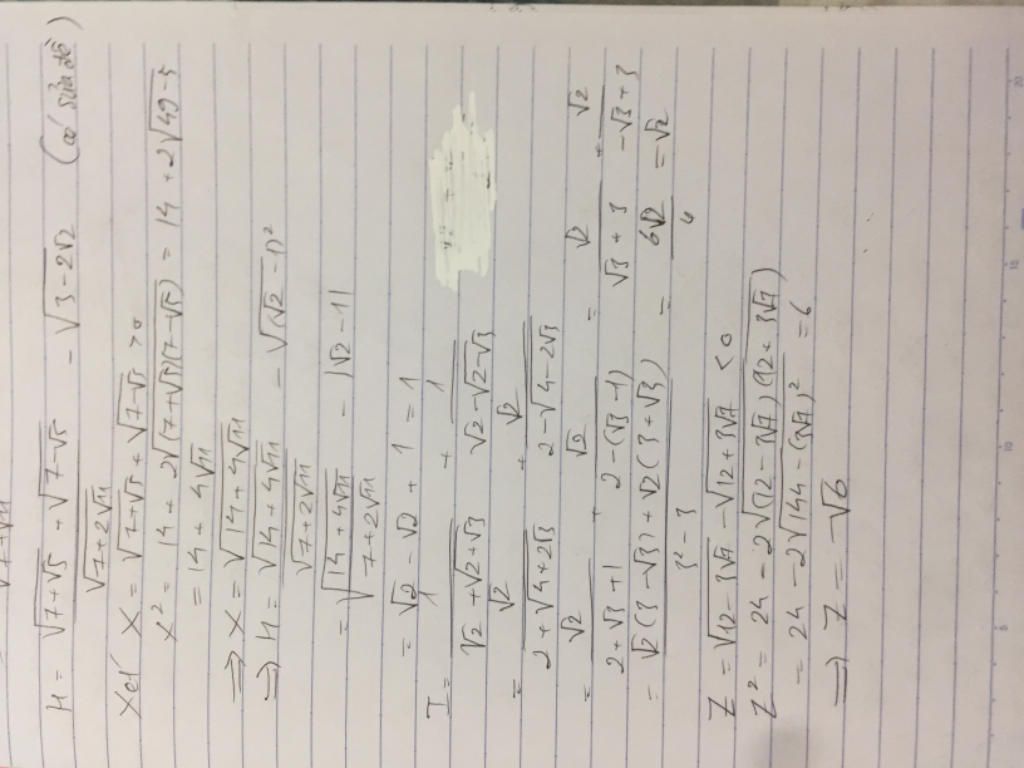 H = √(7+√5) + √(7-√5) / √(7+2√11) - √(3-2√2) (có sửa đề)
Xét X = √(7+√5) + √(7-√5) > 0
X² = 14 + 2√((7+√5)(7-√5)) = 14 + 2√(49-5)
= 14 + 4√11
⇒ X = √(14+4√11)
⇒ H = √(14+4√11) / √(7+2√11) - √((√2-1)²)
= √((14+4√11) / (7+2√11)) - |√2-1|
= √2 - √2 + 1 = 1
I = 1 / (√2+√(2+√3)) + 1 / (√2-√(2-√3))
= √2 / (2+√(4+2√3)) + √2 / (2-√(4-2√3))
= √2 / (2+√3+1) + √2 / (2-(√3-1)) = √2 / (√3+3) + √2 / (-√3+3)
= (√2(3-√3)+√2(3+√3)) / (3²-3) = 6√2 / 6 = √2
Z = √(12-3√7) - √(12+3√7) < 0
Z² = 24 - 2√((12-3√7)(12+3√7))
= 24 - 2√(144-(3√7)²) = 6
⇒ Z = -√6